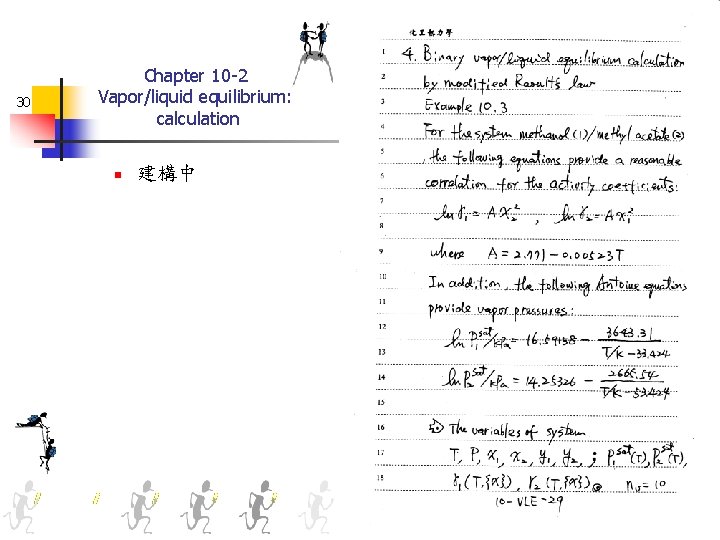 30
Chapter 10-2
Vapor/liquid equilibrium:
calculation
建構中
化工熱力學
1 4. Binary vapor/liquid equilibrium calculation
2 by modified Raoult's law
3 Example 10.3
4 For the system methanol (1)/methyl acetate (2)
5 , the following equations provide a reasonable
6 correlation for the activity coefficients:
7 ln γ₁ = A x₂² , ln γ₂ = A x₁²
8
9 where A = 2.771 - 0.00523T
10 In addition, the following Antoine equations
11 provide vapor pressures:
12 ln P₁^sat/kPa = 16.59158 - 3643.31
13 T/K - 33.424
14 ln P₂^sat/kPa = 14.25326 - 2665.54
T/K - 53.424
15
16 The variables of system
17 T, P, x₁, x₂, y₁, y₂, ; P₁^sat(T), P₂^sat(T),
18 γ₁(T,{x}), γ₂(T,{x}) n_v = 10
10-VLE-29